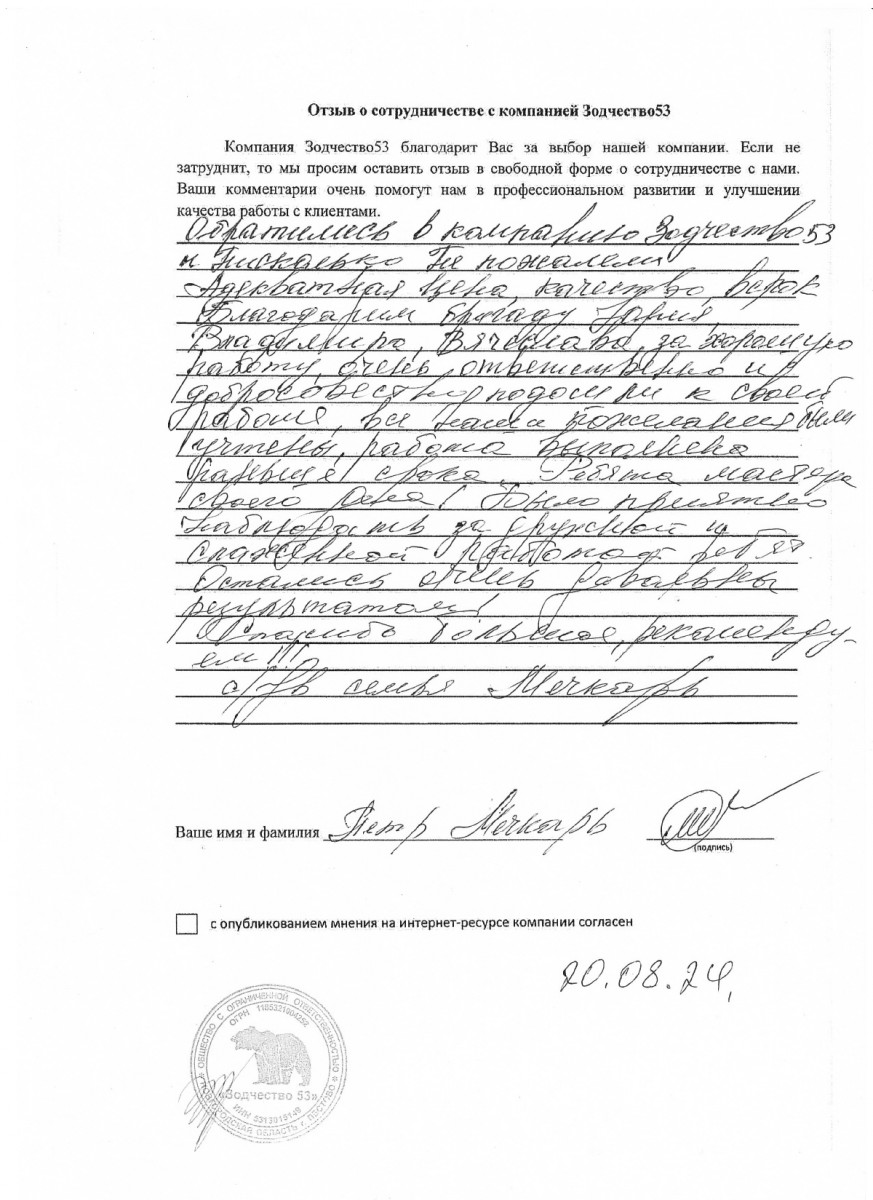 Отзыв о сотрудничестве с компанией Зодчество53
Компания Зодчество53 благодарит Вас за выбор нашей компании. Если не
затруднит, то мы просим оставить отзыв в свободной форме о сотрудничестве с нами.
Ваши комментарии очень помогут нам в профессиональном развитии и улучшении
качества работы с клиентами.
Обратились в компанию Зодчество53
и нисколько не пожалели
Адекватная цена, качество, в срок
Благодарим бригаду
Владимира, Вячеслава, за хорошую
работу, очень ответственно и
добросовестно подошли к своей
работе, все наши пожелания были
учтены, работа выполнена
раньше срока. Ребята мастера
своего дела! Было приятно
наблюдать за дружной и
слаженной работой ребят.
Остались очень довольны
результатом!
Спасибо большое, рекоменду-
ем!!!
с/ув семья Мечкарь
Ваше имя и фамилия Петр Мечкарь
(подпись)
с опубликованием мнения на интернет-ресурсе компании согласен
20.08.24,
ОБЩЕСТВО С ОГРАНИЧЕННОЙ ОТВЕТСТВЕННОСТЬЮ
ОГРН
«Зодчество 53»
ИНН
НОВГОРОДСКАЯ ОБЛАСТЬ г. ПЕСТОВО